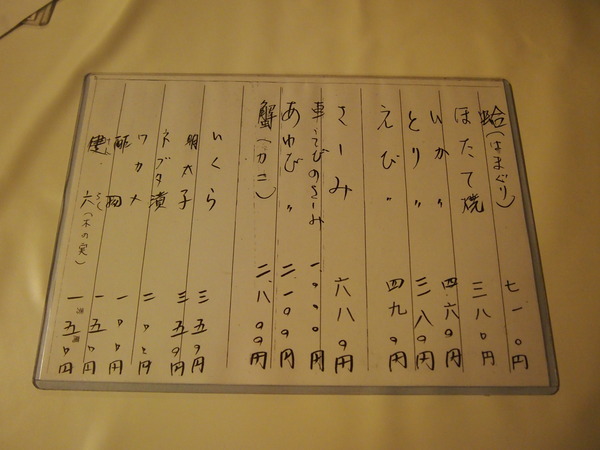 蛤(はまぐり) 七一〇円
ほたて焼 三八〇円
いか〃 四六〇円
とり〃 三八〇円
えび〃 四九〇円
さしみ 六八〇円
車えびのさしみ 一〇〇〇円
あわび〃 二一〇〇円
蟹(カニ) 二、八〇〇円
いくら 三五〇円
明太子 三五〇円
ネブタ漬 二〇〇円
ワカメ 一〇〇円
酢物 一五〇円
六(木の実) 一五〇円